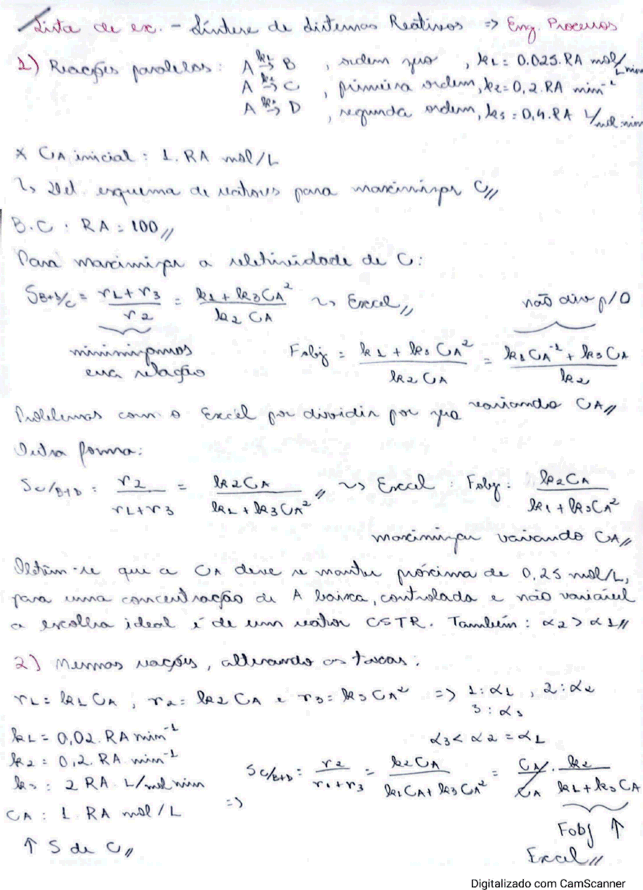 Lista de ex. - Síntese de Sistemas Reativos => Eng. Processos
1) Reações paralelas: A k1→ B , ordem zero , k1 = 0.025.RA mol/L min
A k2→ C , primeira ordem, k2 = 0,2.RA min⁻¹
A k3→ D , segunda ordem, k3 = 0,4.RA L/mol.min
* CA inicial: 1.RA mol/L
↳ Def. esquema de reatores para maximizar C//
B.C : RA = 100//
Para maximizar a seletividade de C:
S B+D/C = (r1 + r3)/r2 = (k1 + k3CA²)/(k2 CA) ↝ Excel// não div p/0
minimizamos essa relação
Fobj = (k1 + k3 CA²)/(k2 CA) = (k1CA⁻¹ + k3CA)/k2
Problemas com o Excel por dividir por zero variando CA//
Outra forma:
S C/B+D = r2/(r1+r3) = k2CA/(k1 + k3CA²)// ↝ Excel : Fobj: k2CA/(k1 + k3CA²)
maximizar variando CA//
Obtém-se que a CA deve se manter próxima de 0,25 mol/L,
para uma concentração de A baixa, controlada e não variável
a escolha ideal é de um reator CSTR. Também: α2 > α1//
2) Mesmas reações, alterando as taxas:
r1 = k1 CA ; r2 = k2 CA e r3 = k3 CA² => 1: α1, 2: α2
3: α3
k1 = 0,02.RA min⁻¹ α3 < α2 = α1
k2 = 0,2.RA min⁻¹
k3 : 2 RA L/mol min
S C/B+D = r2/(r1+r3) = k2CA/(k1CA + k3CA²) = CA/CA . k2/(k1 + k3CA)
CA : 1 RA mol/L =>
↑ S de C// Fobj ↑
Excel//
Digitalizado com CamScanner